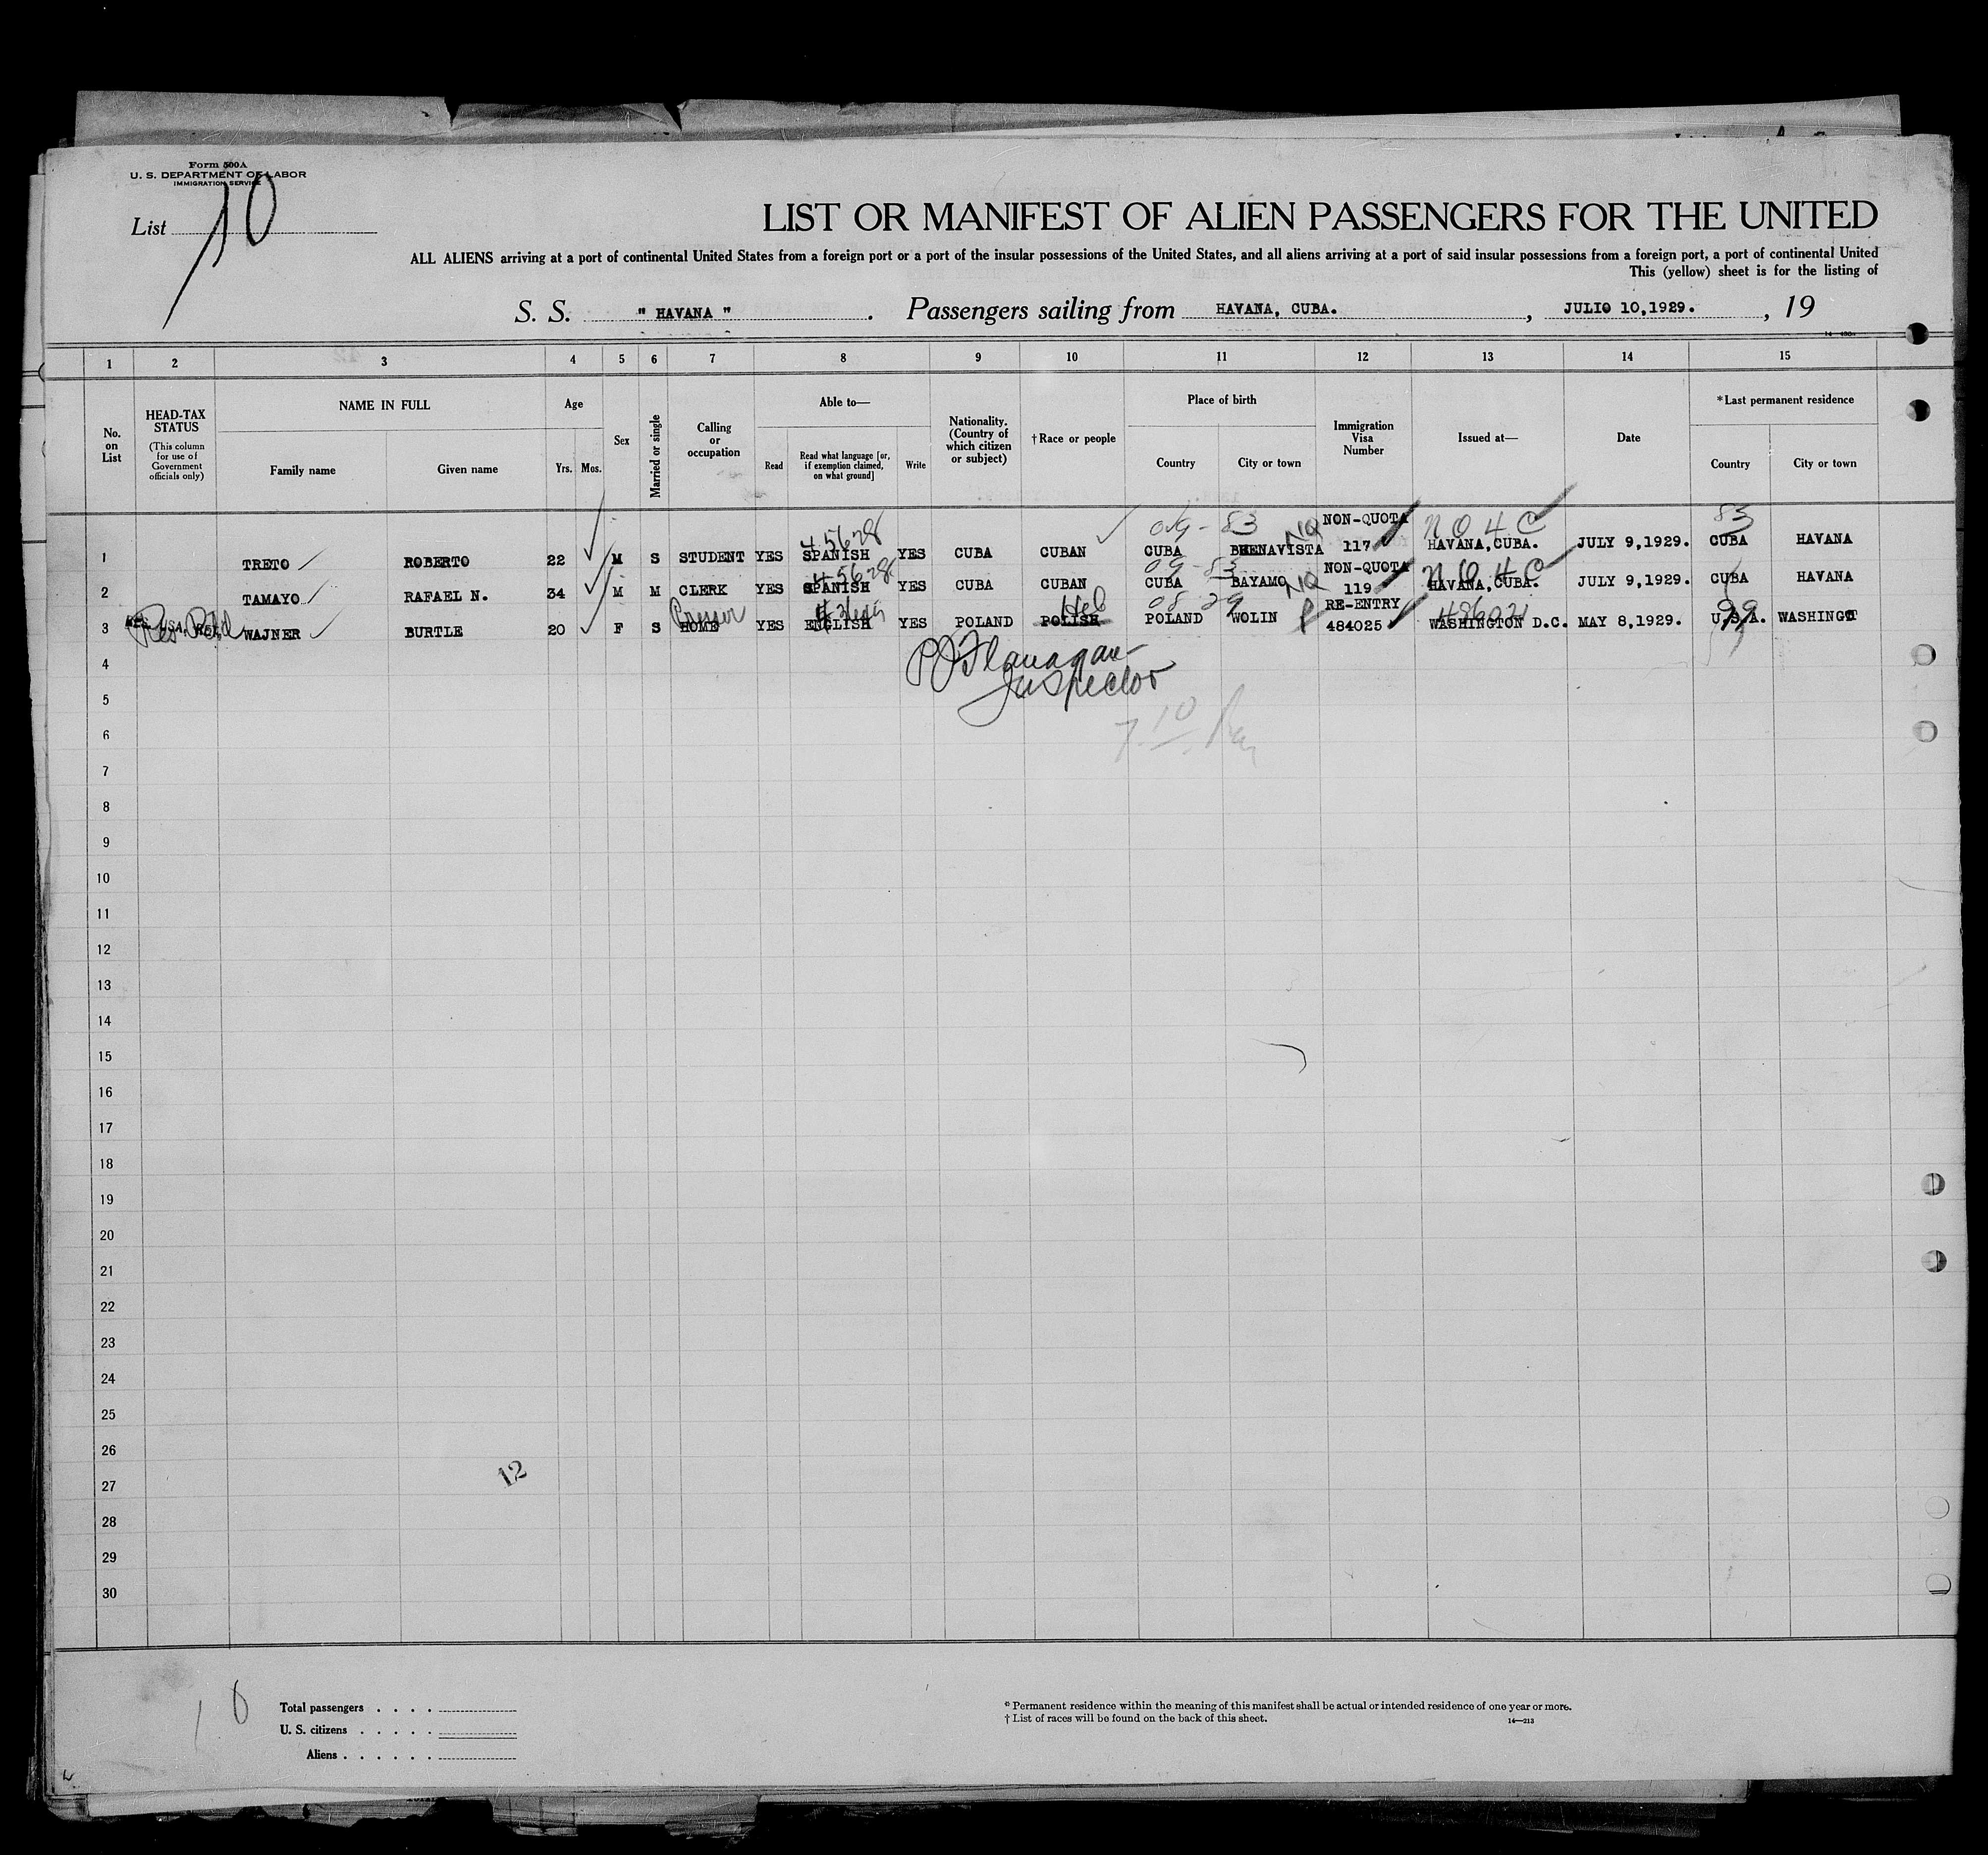 Form 500A
U. S. DEPARTMENT OF LABOR
IMMIGRATION SERVICE
List 10
LIST OR MANIFEST OF ALIEN PASSENGERS FOR THE UNITED
ALL ALIENS arriving at a port of continental United States from a foreign port or a port of the insular possessions of the United States, and all aliens arriving at a port of said insular possessions from a foreign port, a port of continental United
This (yellow) sheet is for the listing of
S. S. " HAVANA " . Passengers sailing from HAVANA, CUBA. , JULIO 10,1929. , 19
1 2 3 4 5 6 7 8 9 10 11 12 13 14 15
No. on List
HEAD-TAX STATUS
(This column for use of Government officials only)
NAME IN FULL
Family name
Given name
Age
Yrs. Mos.
Sex
Married or single
Calling or occupation
Able to—
Read
Read what language [or, if exemption claimed, on what ground]
Write
Nationality. (Country of which citizen or subject)
† Race or people
Place of birth
Country
City or town
Immigration Visa Number
Issued at—
Date
* Last permanent residence
Country
City or town
45628 09-83 NQ NON-QUOTA N O 4 C 83
1 TRETO ROBERTO 22 M S STUDENT YES SPANISH YES CUBA CUBAN CUBA BUENAVISTA 117 HAVANA,CUBA. JULY 9,1929. CUBA HAVANA
45628 09-83 NQ NON-QUOTA N O 4 C
2 TAMAYO RAFAEL N. 34 M M CLERK YES SPANISH YES CUBA CUBAN CUBA BAYAMO 119 HAVANA,CUBA. JULY 9,1929. CUBA HAVANA
Heb 08 29 RE-ENTRY 486021 99
3 WAJNER BURTLE 20 F S HOME YES ENGLISH YES POLAND POLISH POLAND WOLIN 484025 WASHINGTON D.C. MAY 8,1929. U.S.A. WASHINGT
4
PJ Flanagan
Inspector
5
6
7 10
7
8
9
10
11
12
13
14
15
16
17
18
19
20
21
22
23
24
25
26
12
27
28
29
30
10
Total passengers . . . .
U. S. citizens . . . . .
Aliens . . . . . .
* Permanent residence within the meaning of this manifest shall be actual or intended residence of one year or more.
† List of races will be found on the back of this sheet.
14—213